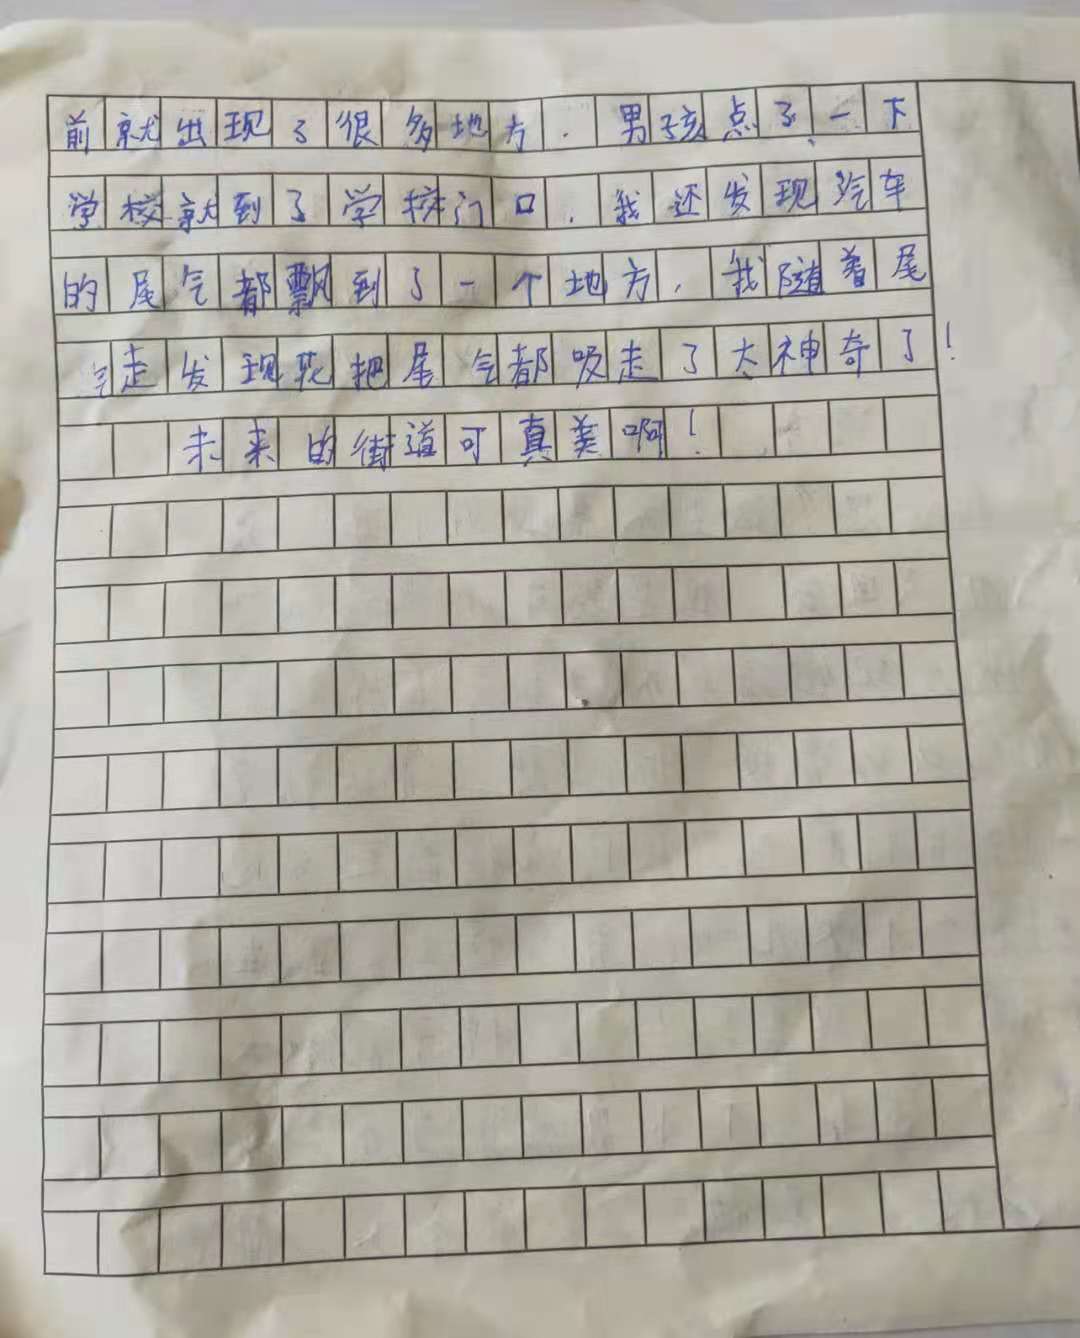 前就出现了很多地方.男孩点了一下
学校就到了学校门口.我还发现汽车
的尾气都飘到了一个地方,我随着尾
气走发现花把尾气都吸走了太神奇了!
未来的街道可真美啊!